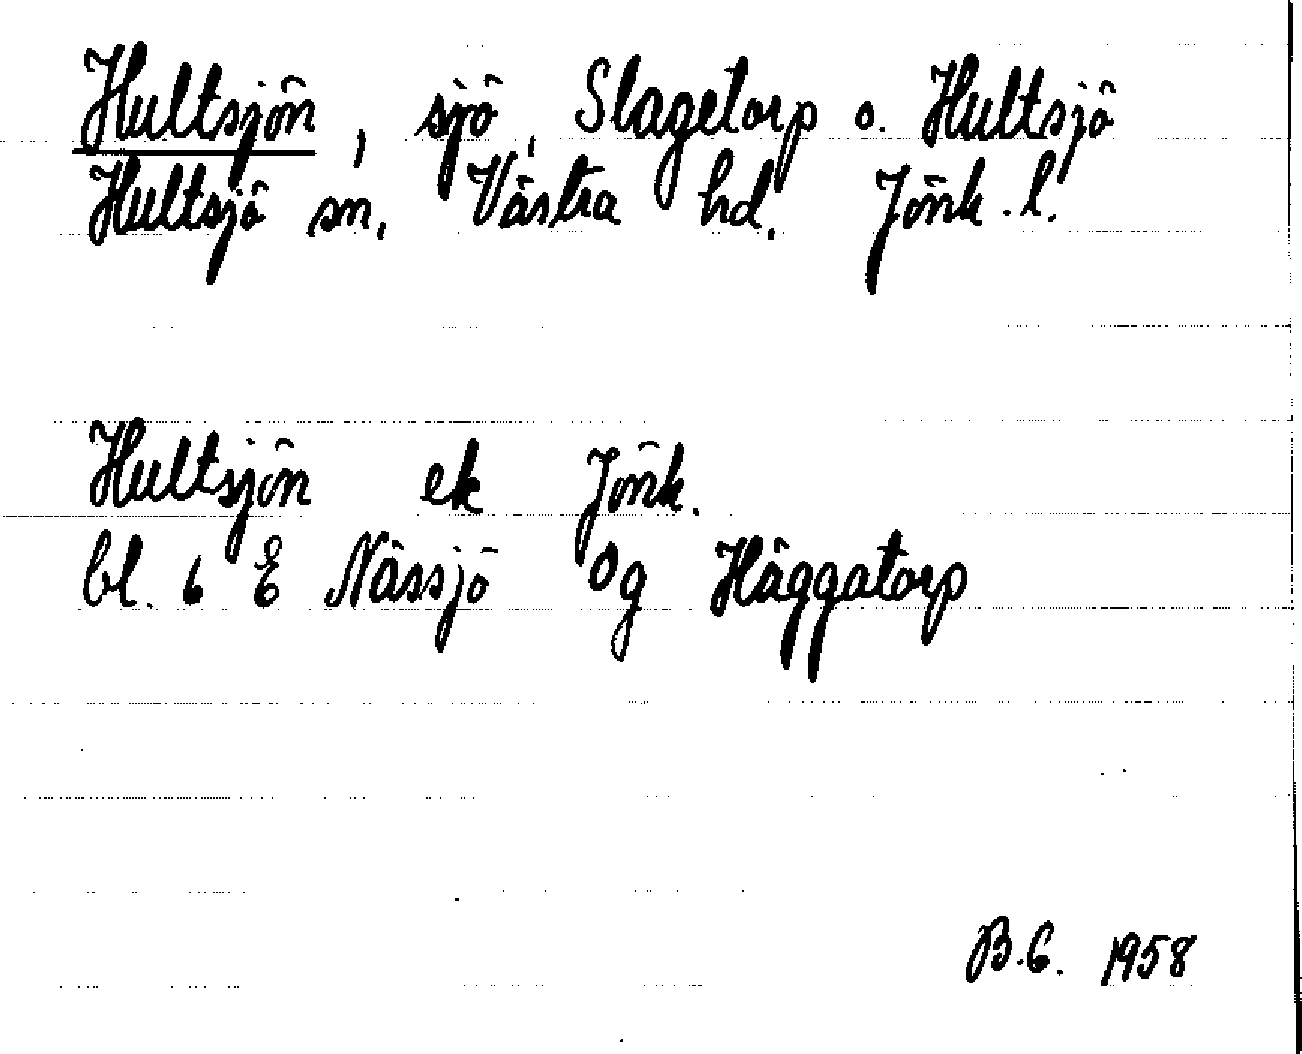 Hultsjön, sjö, Slagetorp o. Hultsjö
Hultsjö sn. Västra hd. Jönk. l.
Hultsjön ek Jönk.
bl. 6 E Nässjö Og Häggatorp
B.G. 1958